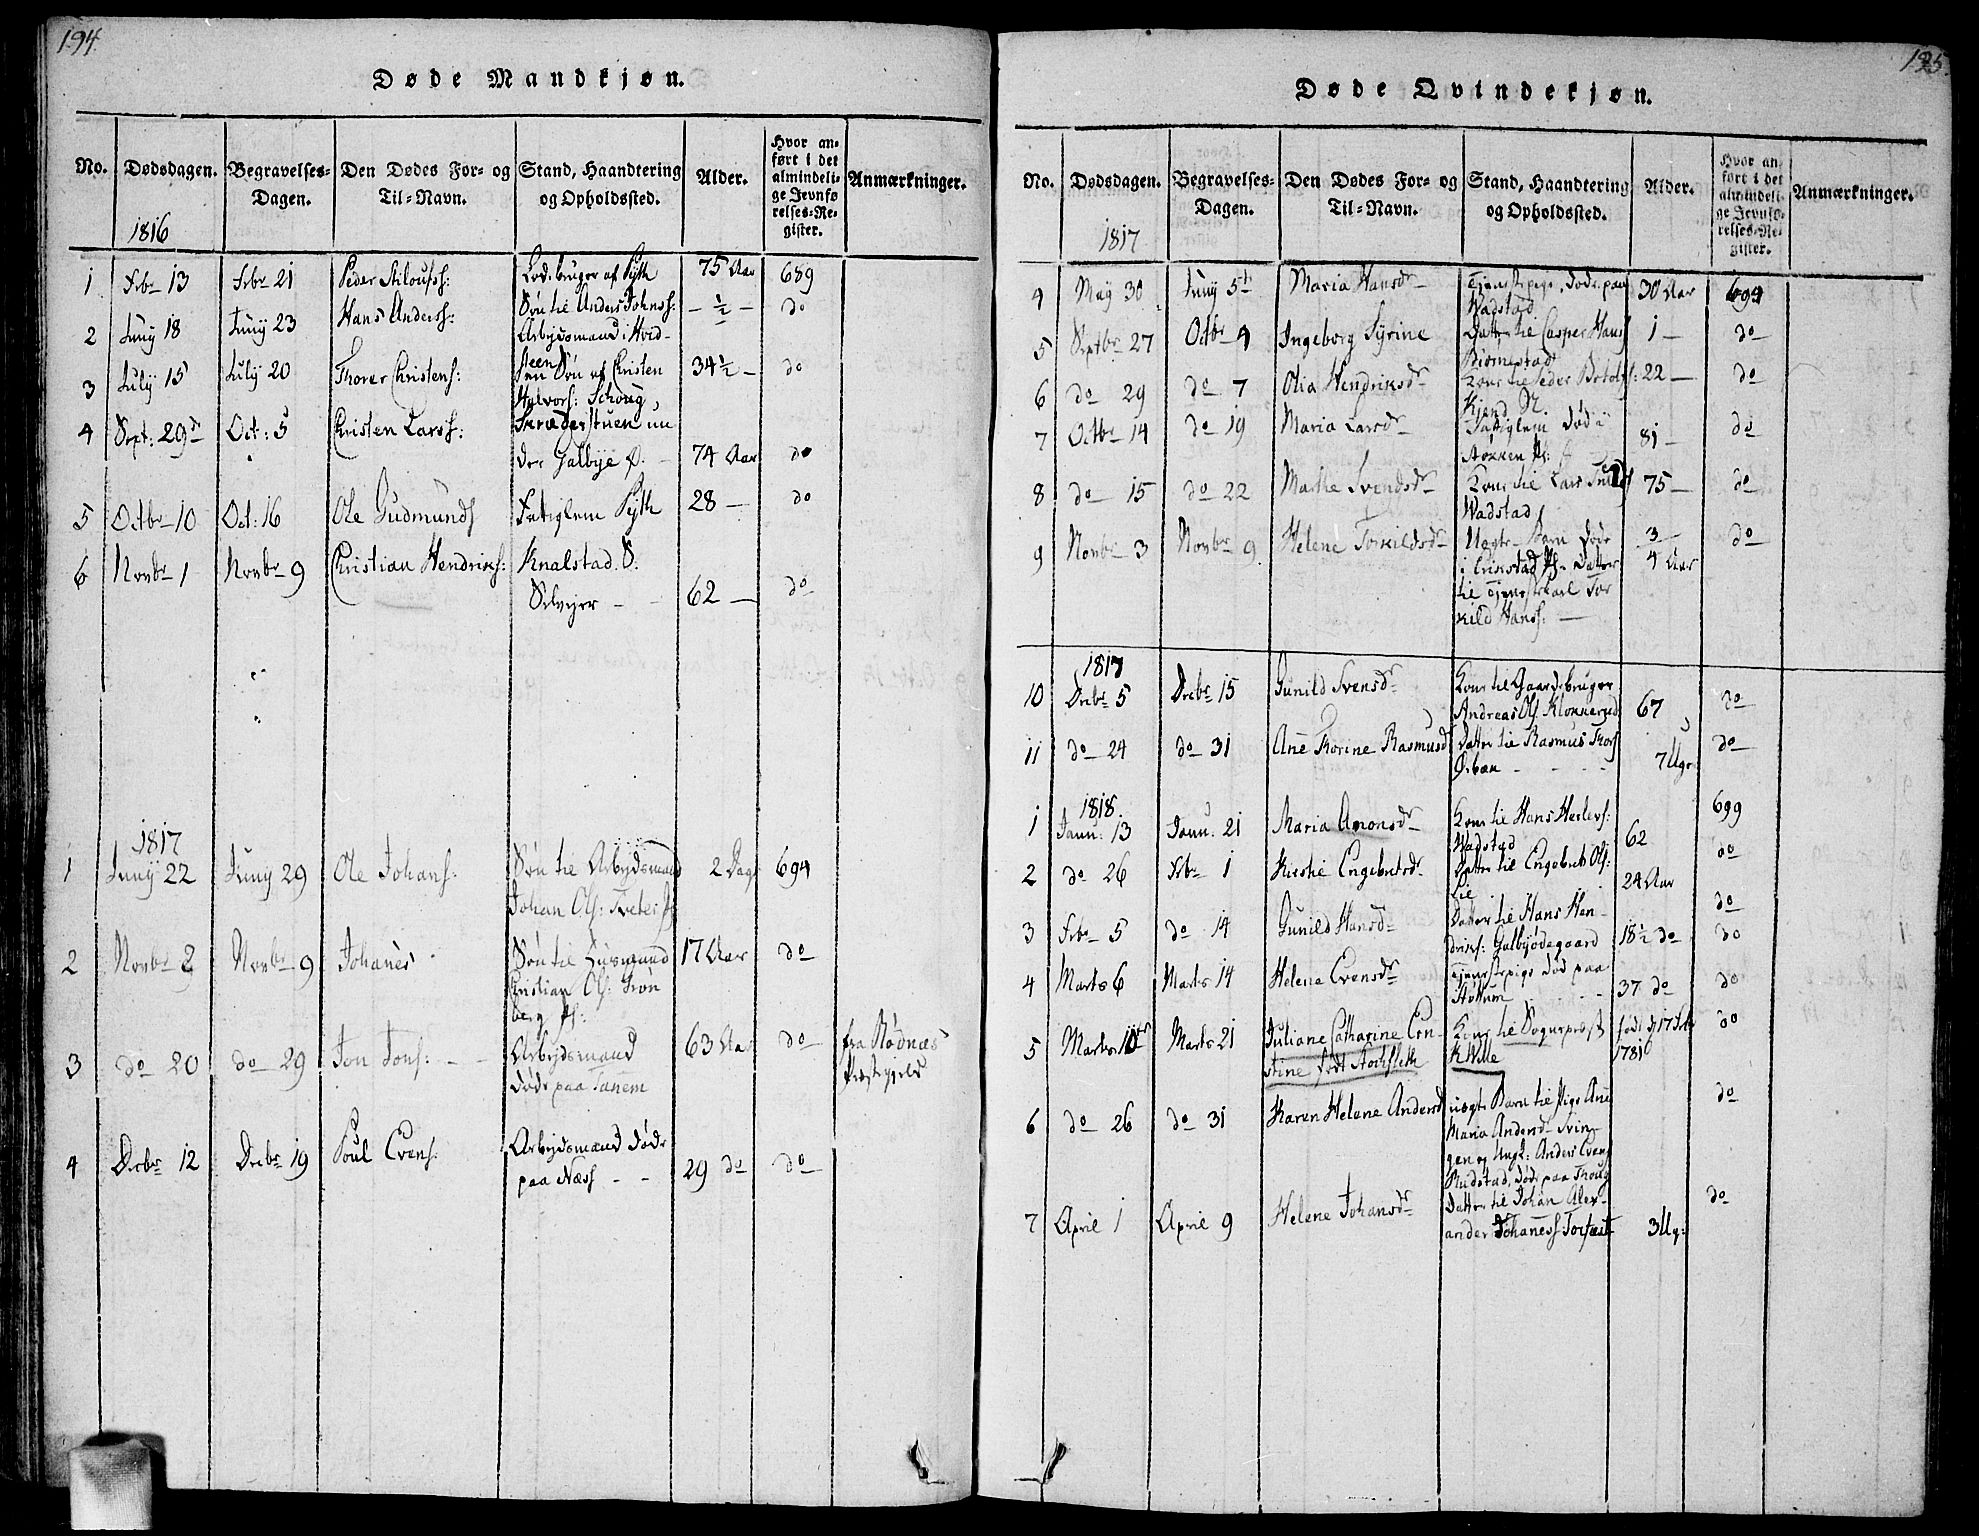 194.
Døde Mandkjøn.
No. Dødsdagen. Begravelses-Dagen. Den Dødes For- og Til-Navn. Stand, Haandtering og Opholdssted. Alder. Hvor anført i det almindelige Jevnførelses-Register. Anmærkninger.
1816
1 Febr 13 Febr 21 Peder 75 Aar 689
2 Juny 18 Juny 23 Hans Anderss: Søn til Anders Johnss: – ½ – do
Arbejdsmand i Hvid-
steen
3 July 15 July 20 Thorer Christens: en Søn af Christen 34½ – do
Halvors: Schoug
4 Sept: 29de Oct: 5 Christen Larss: Skræderstuen un
der Galbye 74 Aar do
5 Octbr 10 Oct: 16 Ole Gudmunds Fatiglem Pyth 28 – do
6 Novbr 1 Novbr 9 Christian Hendrichs: Knalstad. S:
Selvejer – 62 – do
1817
1 Juny 22 Juny 29 Ole Johans: Søn til Arbejdsmand 2 Dage 694
Johan Ols:
2 Novbr 2 Novbr 9 Johanes Søn til Huusmand 17 Aar do
Christian Ols: Grøn
berg
3 do 20 do 29 Jon Jons: Arbejdsmand 63 Aar do fra Rødnæs
døde paa Sanem Præstegjeld
4 Decbr 12 Decbr 19 Poul Evens: Arbejdsmand døde
paa Næss – – 29 do do
195.
Døde Qvindekjøn.
No. Dødsdagen. Begravelses-Dagen. Den Dødes For- og Til-Navn. Stand, Haandtering og Opholdssted. Alder. Hvor anført i det almindelige Jevnførelses-Register. Anmærkninger.
1817
4 May 30 Juny 5te Maria Hansdr Tjenestepige, døde paa 30 Aar 694
Wadstad
5 Septbr 27 Octbr 4 Ingeborg Syrine Datter til Casper Hans 1 – do
Biørnestad
6 do 29 do 7 Olia Hendriksdr Kone til Peder 22 – do
7 Octbr 14 do 19 Maria Larsdr Fatiglem død i 81 – do
8 do 15 do 22 Marthe Svendsdr Kone til Lars 75 – do
Wadstad
9 Novbr 3 Novbr 9 Helene Torkildsdr Uægte Barn døde 3 – do
i Datter 4 Aar
til Tjenestekarl Tor
kild Hanss: –
1817
10 Decbr 5 Decbr 15 Gunild Svensdr Kone til Gaardsbruger
Andreas Ols: Klokkerud 67 do
11 do 24 do 31 Ane Thorine Rasmusd Datter til Rasmus Thors do
7 Uger
1818.
1 Janu: 13 Janu. 21 Maria Amonsdr Kone til Hans 699
Wadstad 62
2 do 26 Febr 1 Kirstie Engebretsdr Datter til Engebret Ols: do
Lie 24 Aar
3 Febr 5 do 14 Gunild Hansdr Datter til Hans Hen- do
driks: Galbyødegaard 18½ do
4 Marts 6 Marts 14 Helene Evensdr Tjenestepige død paa do
37 do
5 Marts Marts 21 Juliane Catharine Ern- Kone til Sogneprest født d 17 do
stine født Stockfleth Wille 1781
6 do 26 do 31 Karen Helene Andersd uægte Barn til Pige Ane do
Maria Andersd Svin-
gen og Ungk: Anders Evens
Rudstad, døde paa
7 April 1 April 9 Helene Johansdr Datter til Johan Alex- do
ander Johaness: 3 Ug: